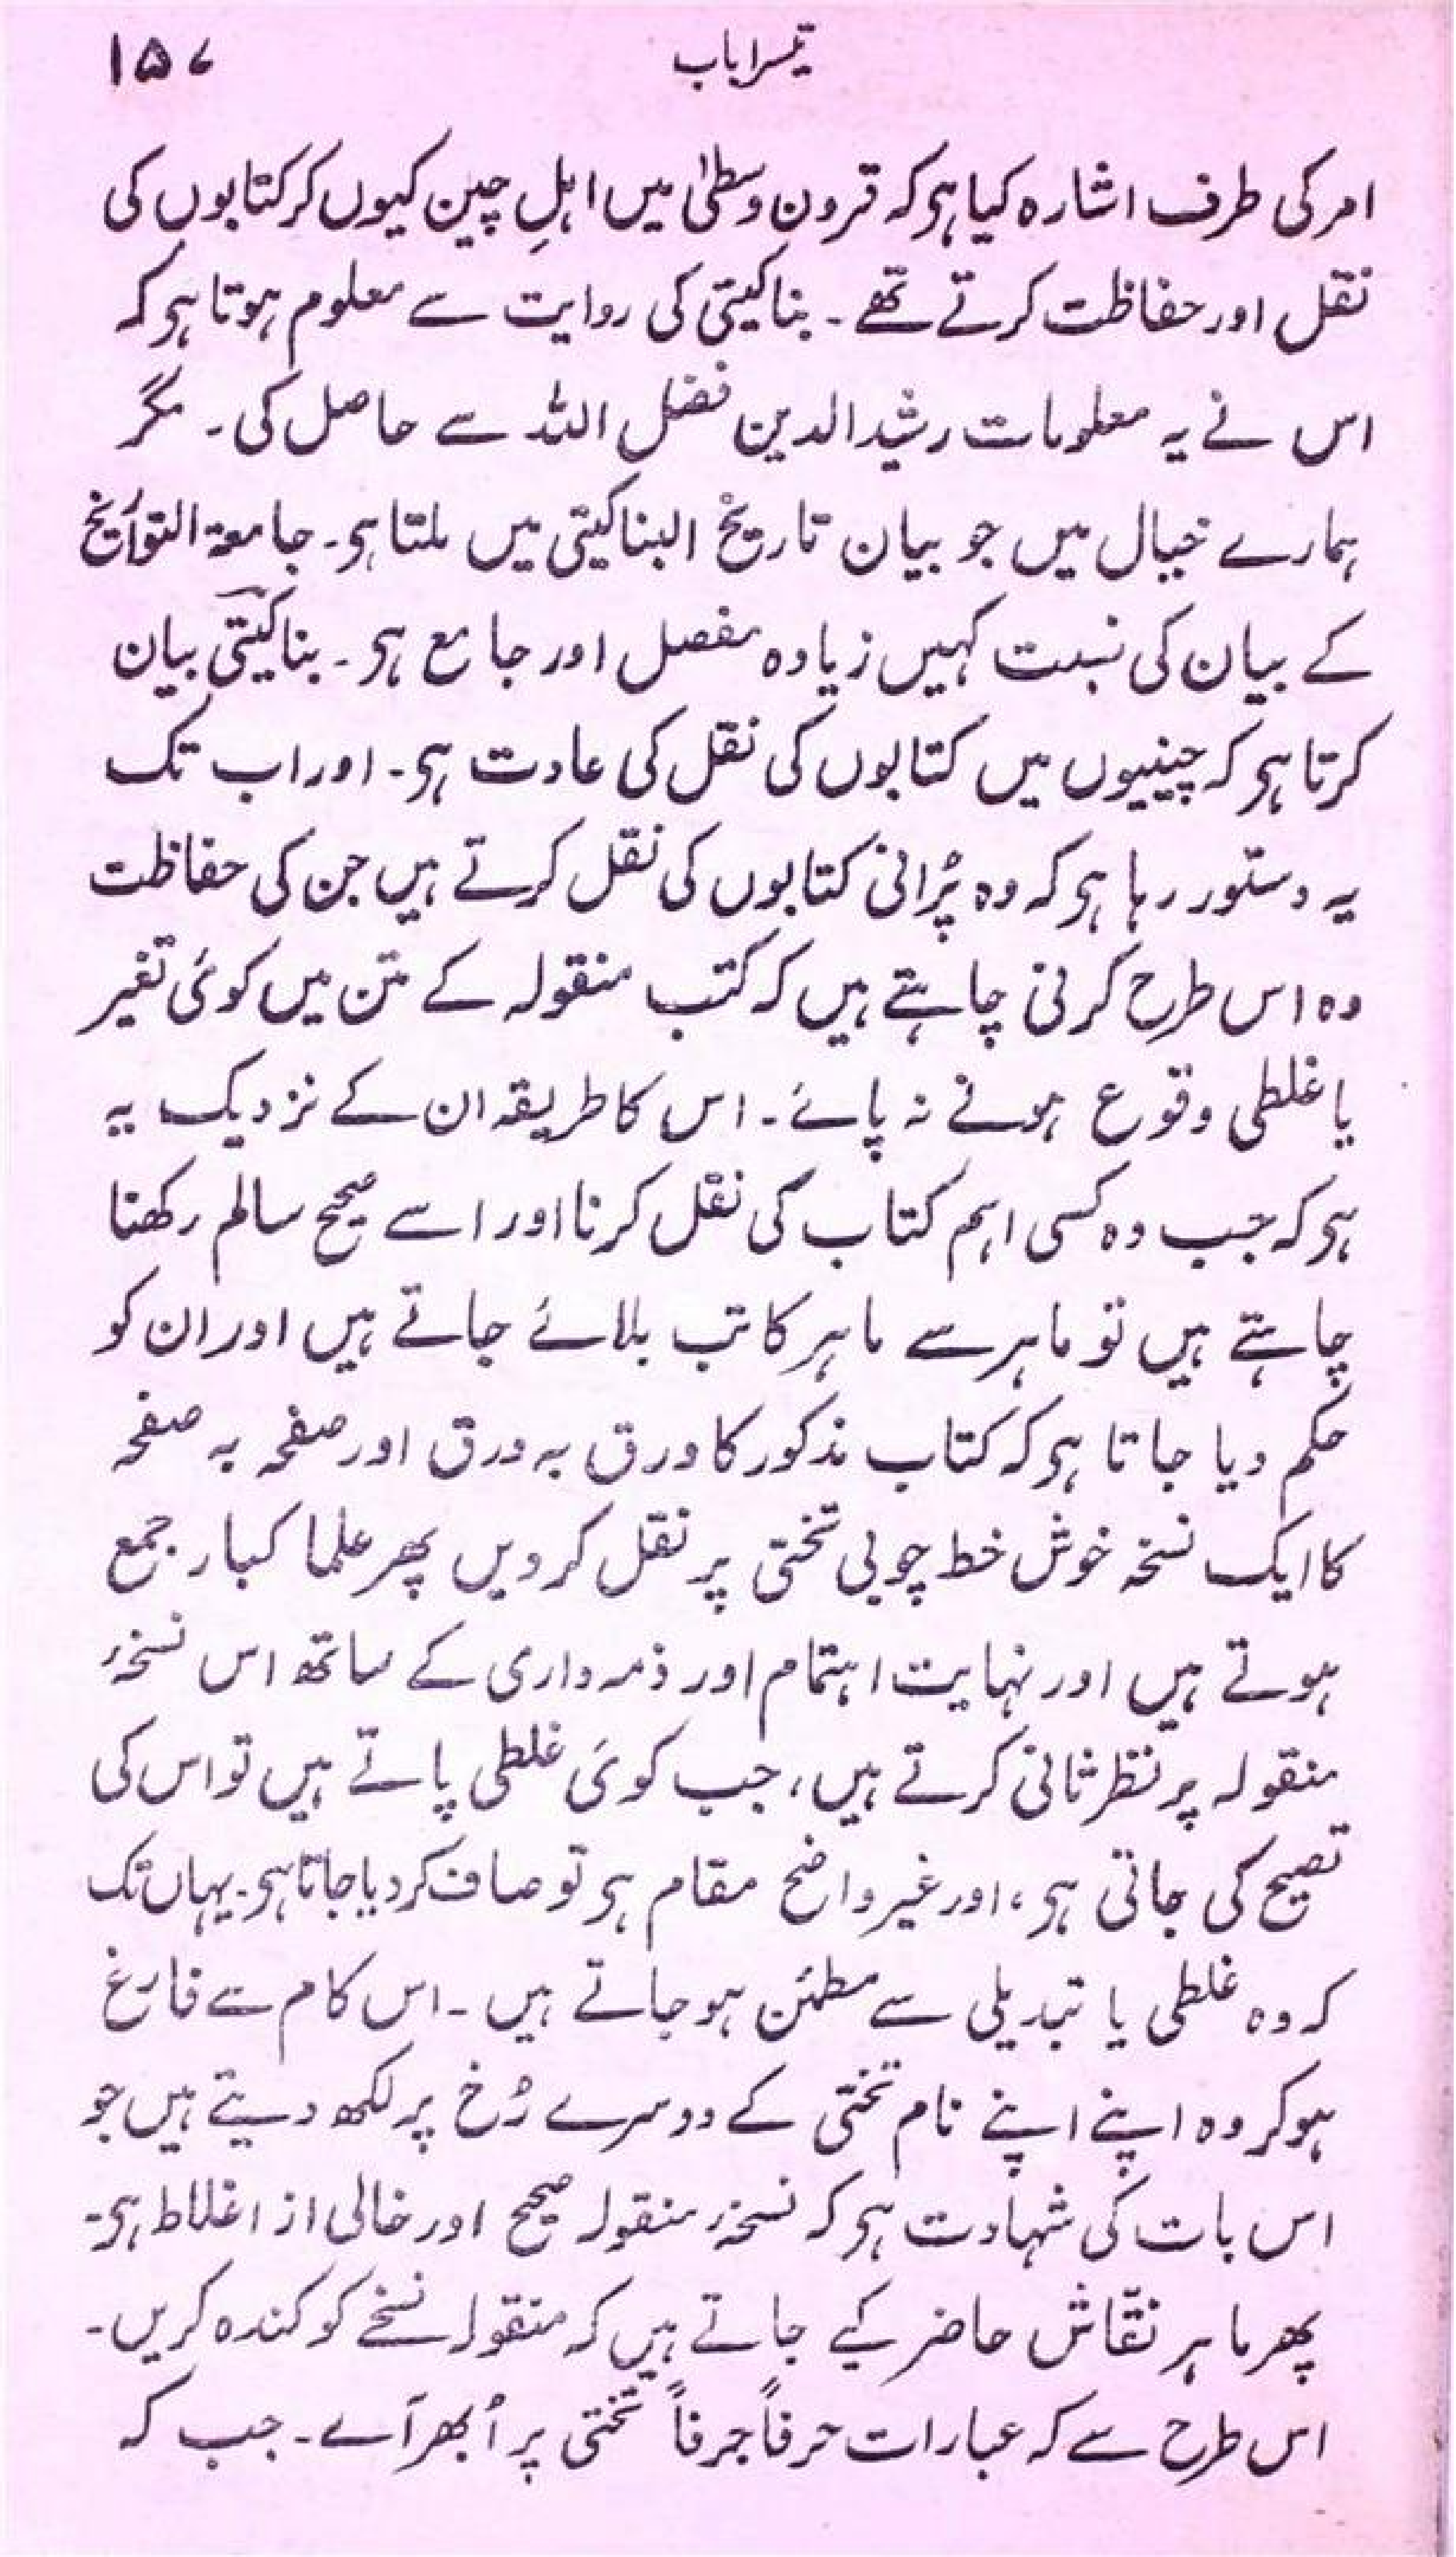 تیسرا باب
۱۵۷
امر کی طرف اشارہ کیا ہو کہ قرون وسطیٰ میں اہلِ چین کیوں کر کتابوں کی
نقل اور حفاظت کرتے تھے ۔ بناکیتی کی روایت سے معلوم ہوتا ہو کہ
اس نے یہ معلومات رشید الدین فضل اللہ سے حاصل کی ۔ مگر
ہمارے خیال میں جو بیان تاریخ البناکیتی میں ملتا ہو ۔ جامعۃ التواریخ
کے بیان کی نسبت کہیں زیادہ مفصل اور جامع ہو ۔ بناکیتی بیان
کرتا ہو کہ چینیوں میں کتابوں کی نقل کی عادت ہو ۔ اور اب تک
یہ دستور رہا ہو کہ وہ پُرانی کتابوں کی نقل کرتے ہیں جن کی حفاظت
وہ اس طرح کرنی چاہتے ہیں کہ کتب منقولہ کے متن میں کوئی تغیر
یا غلطی وقوع ہونے نہ پائے ۔ اس کا طریقہ ان کے نزدیک یہ
ہو کہ جب وہ کسی اہم کتاب کی نقل کرنا اور اسے صحیح سالم رکھنا
چاہتے ہیں تو ماہر سے ماہر کاتب بلائے جاتے ہیں اور ان کو
حکم دیا جاتا ہو کہ کتاب مذکور کا ورق بہ ورق اور صفحہ بہ صفحہ
کا ایک نسخہ خوش خط چوبی تختی پر نقل کردیں پھر علما کبار جمع
ہوتے ہیں اور نہایت اہتمام اور ذمہ داری کے ساتھ اس نسخۂ
منقولہ پر نظر ثانی کرتے ہیں، جب کوئی غلطی پاتے ہیں تو اس کی
تصیح کی جاتی ہو، اور غیر واضح مقام ہو تو صاف کردیا جاتا ہو ۔ یہاں تک
کہ وہ غلطی یا تبدیلی سے مطمئن ہو جاتے ہیں ۔ اس کام سے فارغ
ہو کر وہ اپنے اپنے نام تختی کے دوسرے رُخ پر لکھ دیتے ہیں جو
اس بات کی شہادت ہو کہ نسخۂ منقولہ صحیح اور خالی از اغلاط ہو ۔
پھر ماہر نقّاش حاضر کیے جاتے ہیں کہ منقولہ نسخے کو کندہ کریں ۔
اس طرح سے کہ عبارات حرفاً جرفاً تختی پر اُبھر آے ۔ جب کہ